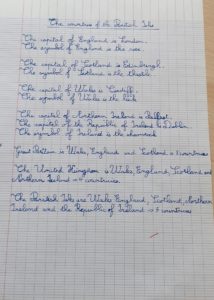 The countries of the British Isles
The capital of England is London.
The symbol of England is the rose.
The capital of Scotland is Edinburgh.
The symbol of Scotland is the thistle.
The capital of Wales is Cardiff.
The symbol of Wales is the leek
The capital of Northern Ireland is Belfast.
The capital of the Republic of Ireland is Dublin.
The symbol of Ireland is the shamrock
Great Britain is Wales, England and Scotland = countries
The United Kingdom is Wales, England, Scotland and
Northern Ireland = 4 countries.
The British Isles are Wales, England, Scotland, Northern
Ireland and the Republic of Ireland = 5 countries